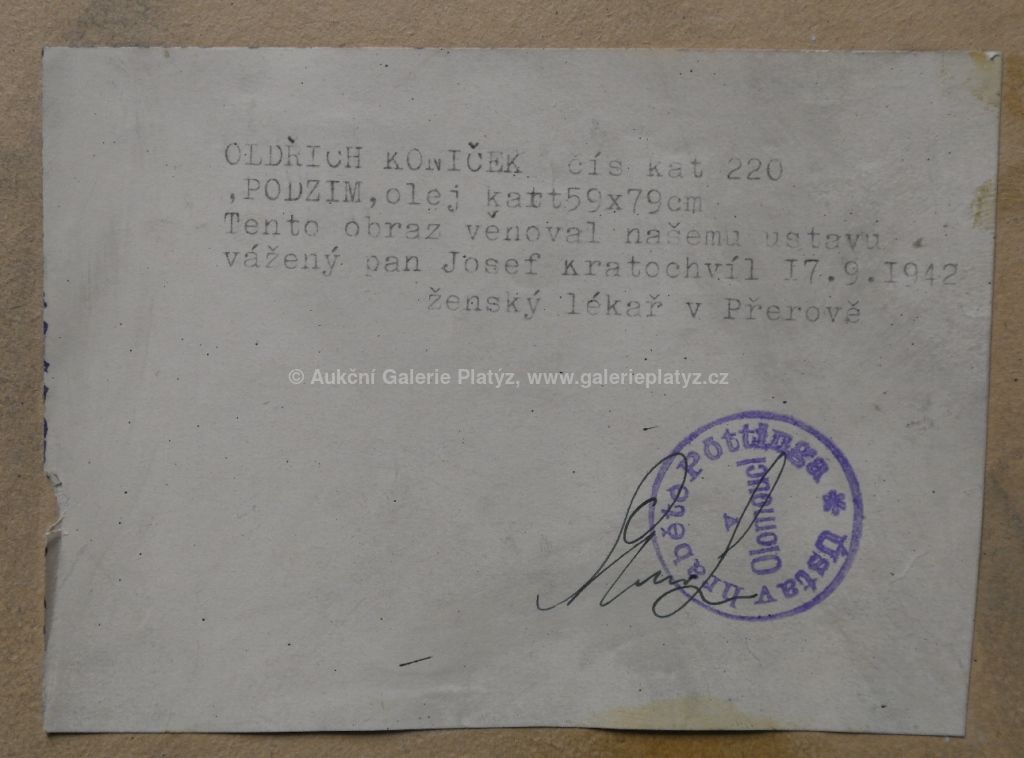 OLDŘICH KONIČEK čís kat 220
,PODZIM,olej kart59x79cm
Tento obraz věnoval našemu ustavu
vážený pan Josef Kratochvíl 17.9.1942
ženský lékař v Přerově
© Aukční Galerie Platýz, www.galerieplatyz.cz
Ústav hraběte Pöttinga *
v
Olomouci